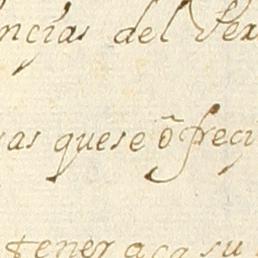 ncias del Rex
as quese ofreci
tener aca su